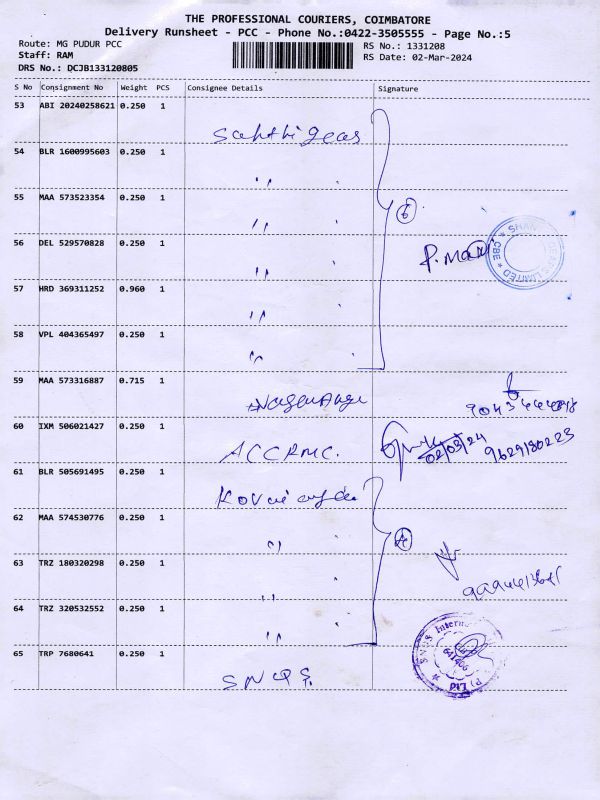 THE PROFESSIONAL COURIERS, COIMBATORE
Delivery Runsheet - PCC - Phone No.:0422-3505555 - Page No.:5
Route: MG PUDUR PCC
RS No.: 1331208
Staff: RAM
RS Date: 02-Mar-2024
DRS No.: DCJB133120805
S No Consignment No Weight PCS Consignee Details Signature
53 ABI 20240258621 0.250 1 Sakthi gears
54 BLR 1600995603 0.250 1 "
55 MAA 573523354 0.250 1 "
6
56 DEL 529570828 0.250 1 " P. Mani
CBE * GEARS LIMITED *
57 HRD 369311252 0.960 1 "
58 VPL 404365497 0.250 1 "
59 MAA 573316887 0.715 1
60 IXM 506021427 0.250 1 ACCRMC. 02/03/24 9629180223
61 BLR 505691495 0.250 1
62 MAA 574530776 0.250 1 "
4
63 TRZ 180320298 0.250 1 "
64 TRZ 320532552 0.250 1 "
65 TRP 7680641 0.250 1 SNQS.
SNQS Internati
P) Ltd